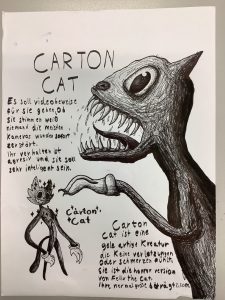 CARTON
CAT
Es soll videobeweise
für sie geben, ob
sie stimmen weiß
niemand die meisten
Kameras wurden sofort
zerstört.
Ihr verhalten ist
agresiv und sie soll
sehr inteligent sein.
"Carton"
Cat
Carton
Cat ist eine
gele artige Kreatur
die Keine verletzungen
oder schmerzen fühlt.
Sie ist die horror version
von Felix the Cat.
Ihre normal größe beträgt